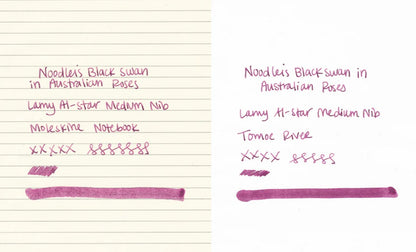 Noodler's Black Swan
in Australian Roses
Lamy Al-star Medium Nib
Moleskine Notebook
xxxxx sssssss
Noodler's Black Swan in
Australian Roses
Lamy Al-star Medium Nib
Tomoe River
xxxx sssss